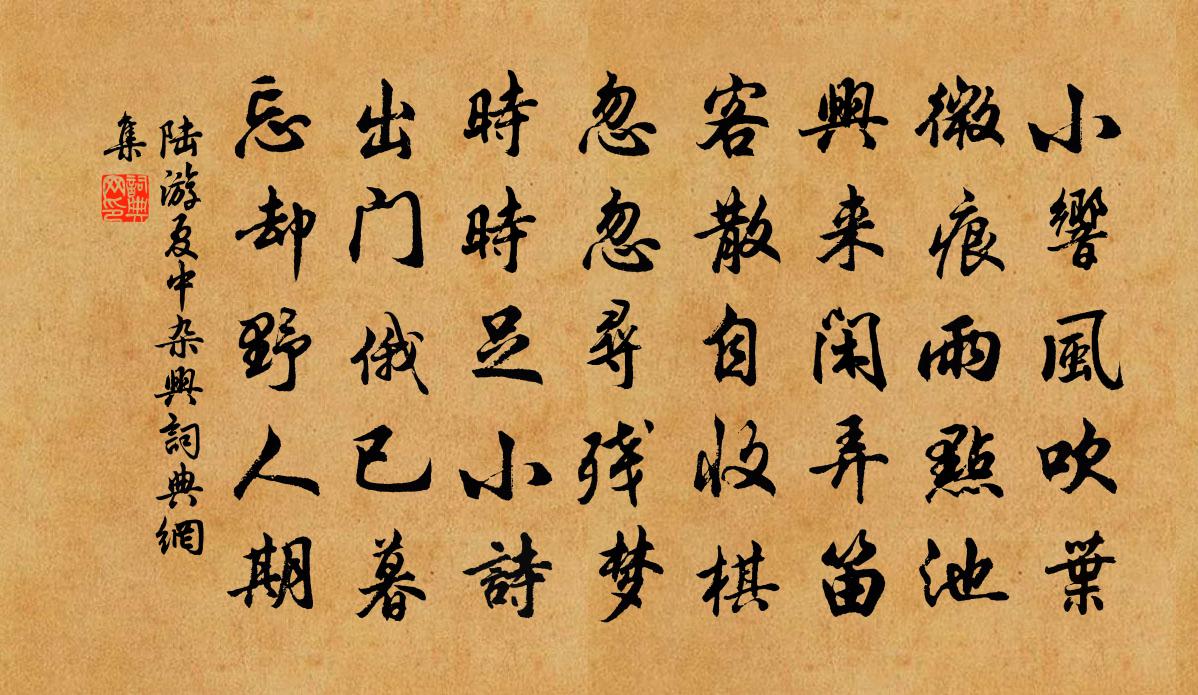 小響風吹葉
微痕雨點池
興来閑弄笛
客散自收棋
忽忽尋残梦
時時足小詩
出门俄已暮
忘却野人期
陆游夏中杂興詞典網
集
詞典
网印